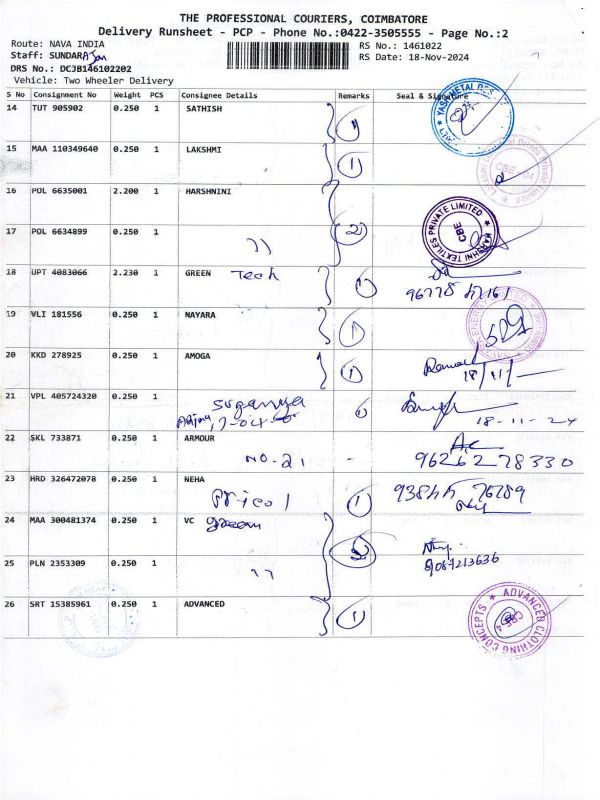 THE PROFESSIONAL COURIERS, COIMBATORE
Delivery Runsheet - PCP - Phone No.:0422-3505555 - Page No.:2
Route: NAVA INDIA
RS No.: 1461022
Staff: SUNDAR
RS Date: 18-Nov-2024
DRS No.: DCJB146102202
Vehicle: Two Wheeler Delivery
S No Consignment No Weight PCS Consignee Details Remarks Seal & Signature
14 TUT 905902 0.250 1 SATHISH
15 MAA 110349640 0.250 1 LAKSHMI 1
16 POL 6635001 2.200 1 HARSHNINI
HARSHNI TEXTILES PRIVATE LIMITED CBE
17 POL 6634899 0.250 1 2
18 UPT 4083066 2.230 1 GREEN Tech 1
19 VLI 181556 0.250 1 NAYARA 1
20 KKD 278925 0.250 1 AMOGA 1
18/11/
21 VPL 405724320 0.250 1 suganya 1
18-11-24
22 SKL 733871 0.250 1 ARMOUR
NO-21 - 9626278330
23 HRD 326472078 0.250 1 NEHA
Pricol 1
24 MAA 300481374 0.250 1 VC green
25 PLN 2353309 0.250 1 " 9087213636
26 SRT 15385961 0.250 1 ADVANCED 1
ADVANCED CLOTHING CONCEPTS